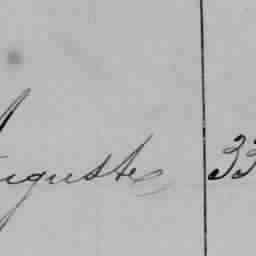 Auguste 33